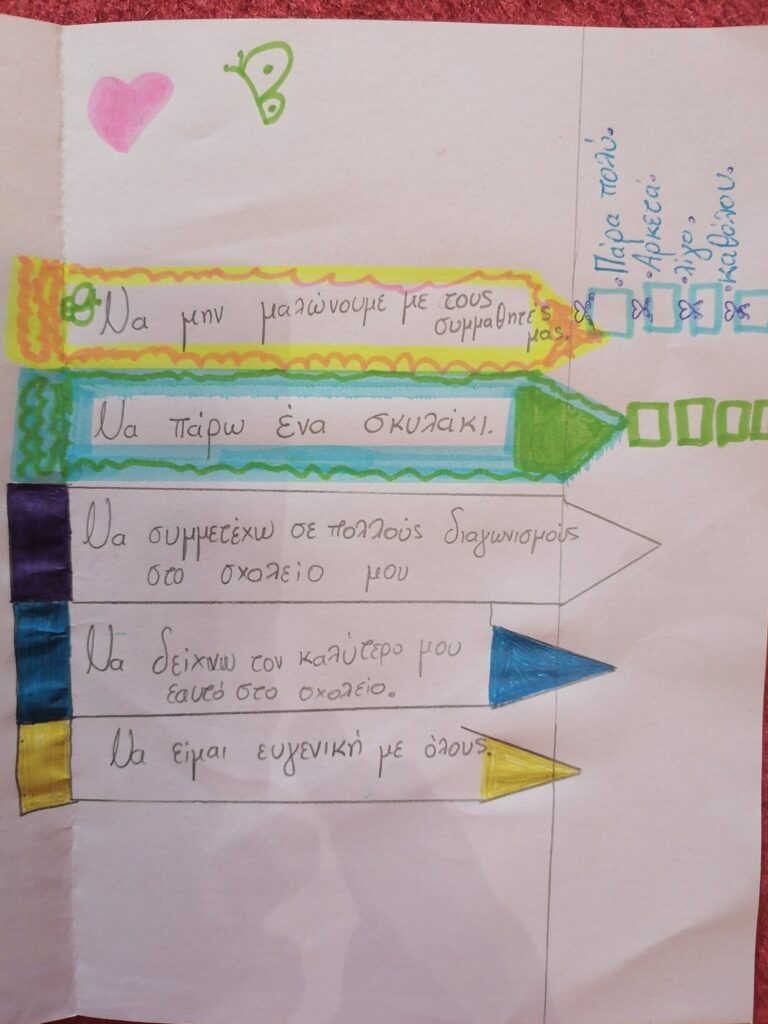 Πάρα πολύ.
Αρκετά.
λίγο.
καθόλου.
Να μην μαλώνουμε με τους
συμμαθητές
μας.
Να πάρω ένα σκυλάκι.
Να συμμετέχω σε πολλούς διαγωνισμούς
στο σχολείο μου
Να δείχνω τον καλύτερο μου
εαυτό στο σχολείο.
Να είμαι ευγενική με όλους.